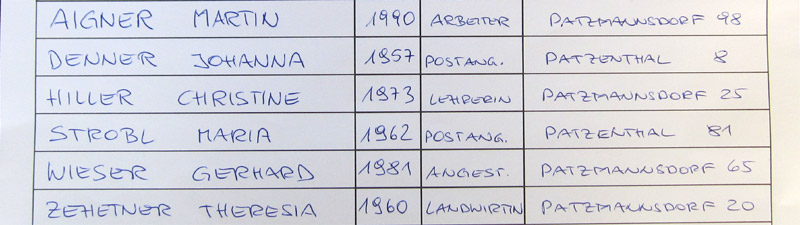 AIGNER MARTIN 1990 ARBEITER PATZMANNSDORF 98
DENNER JOHANNA 1957 POSTANG. PATZENTHAL 8
HILLER CHRISTINE 1973 LEHRERIN PATZMANNSDORF 25
STROBL MARIA 1962 POSTANG. PATZENTHAL 81
WIESER GERHARD 1981 ANGEST. PATZMANNSDORF 65
ZEHETNER THERESIA 1960 LANDWIRTIN PATZMANNSDORF 20